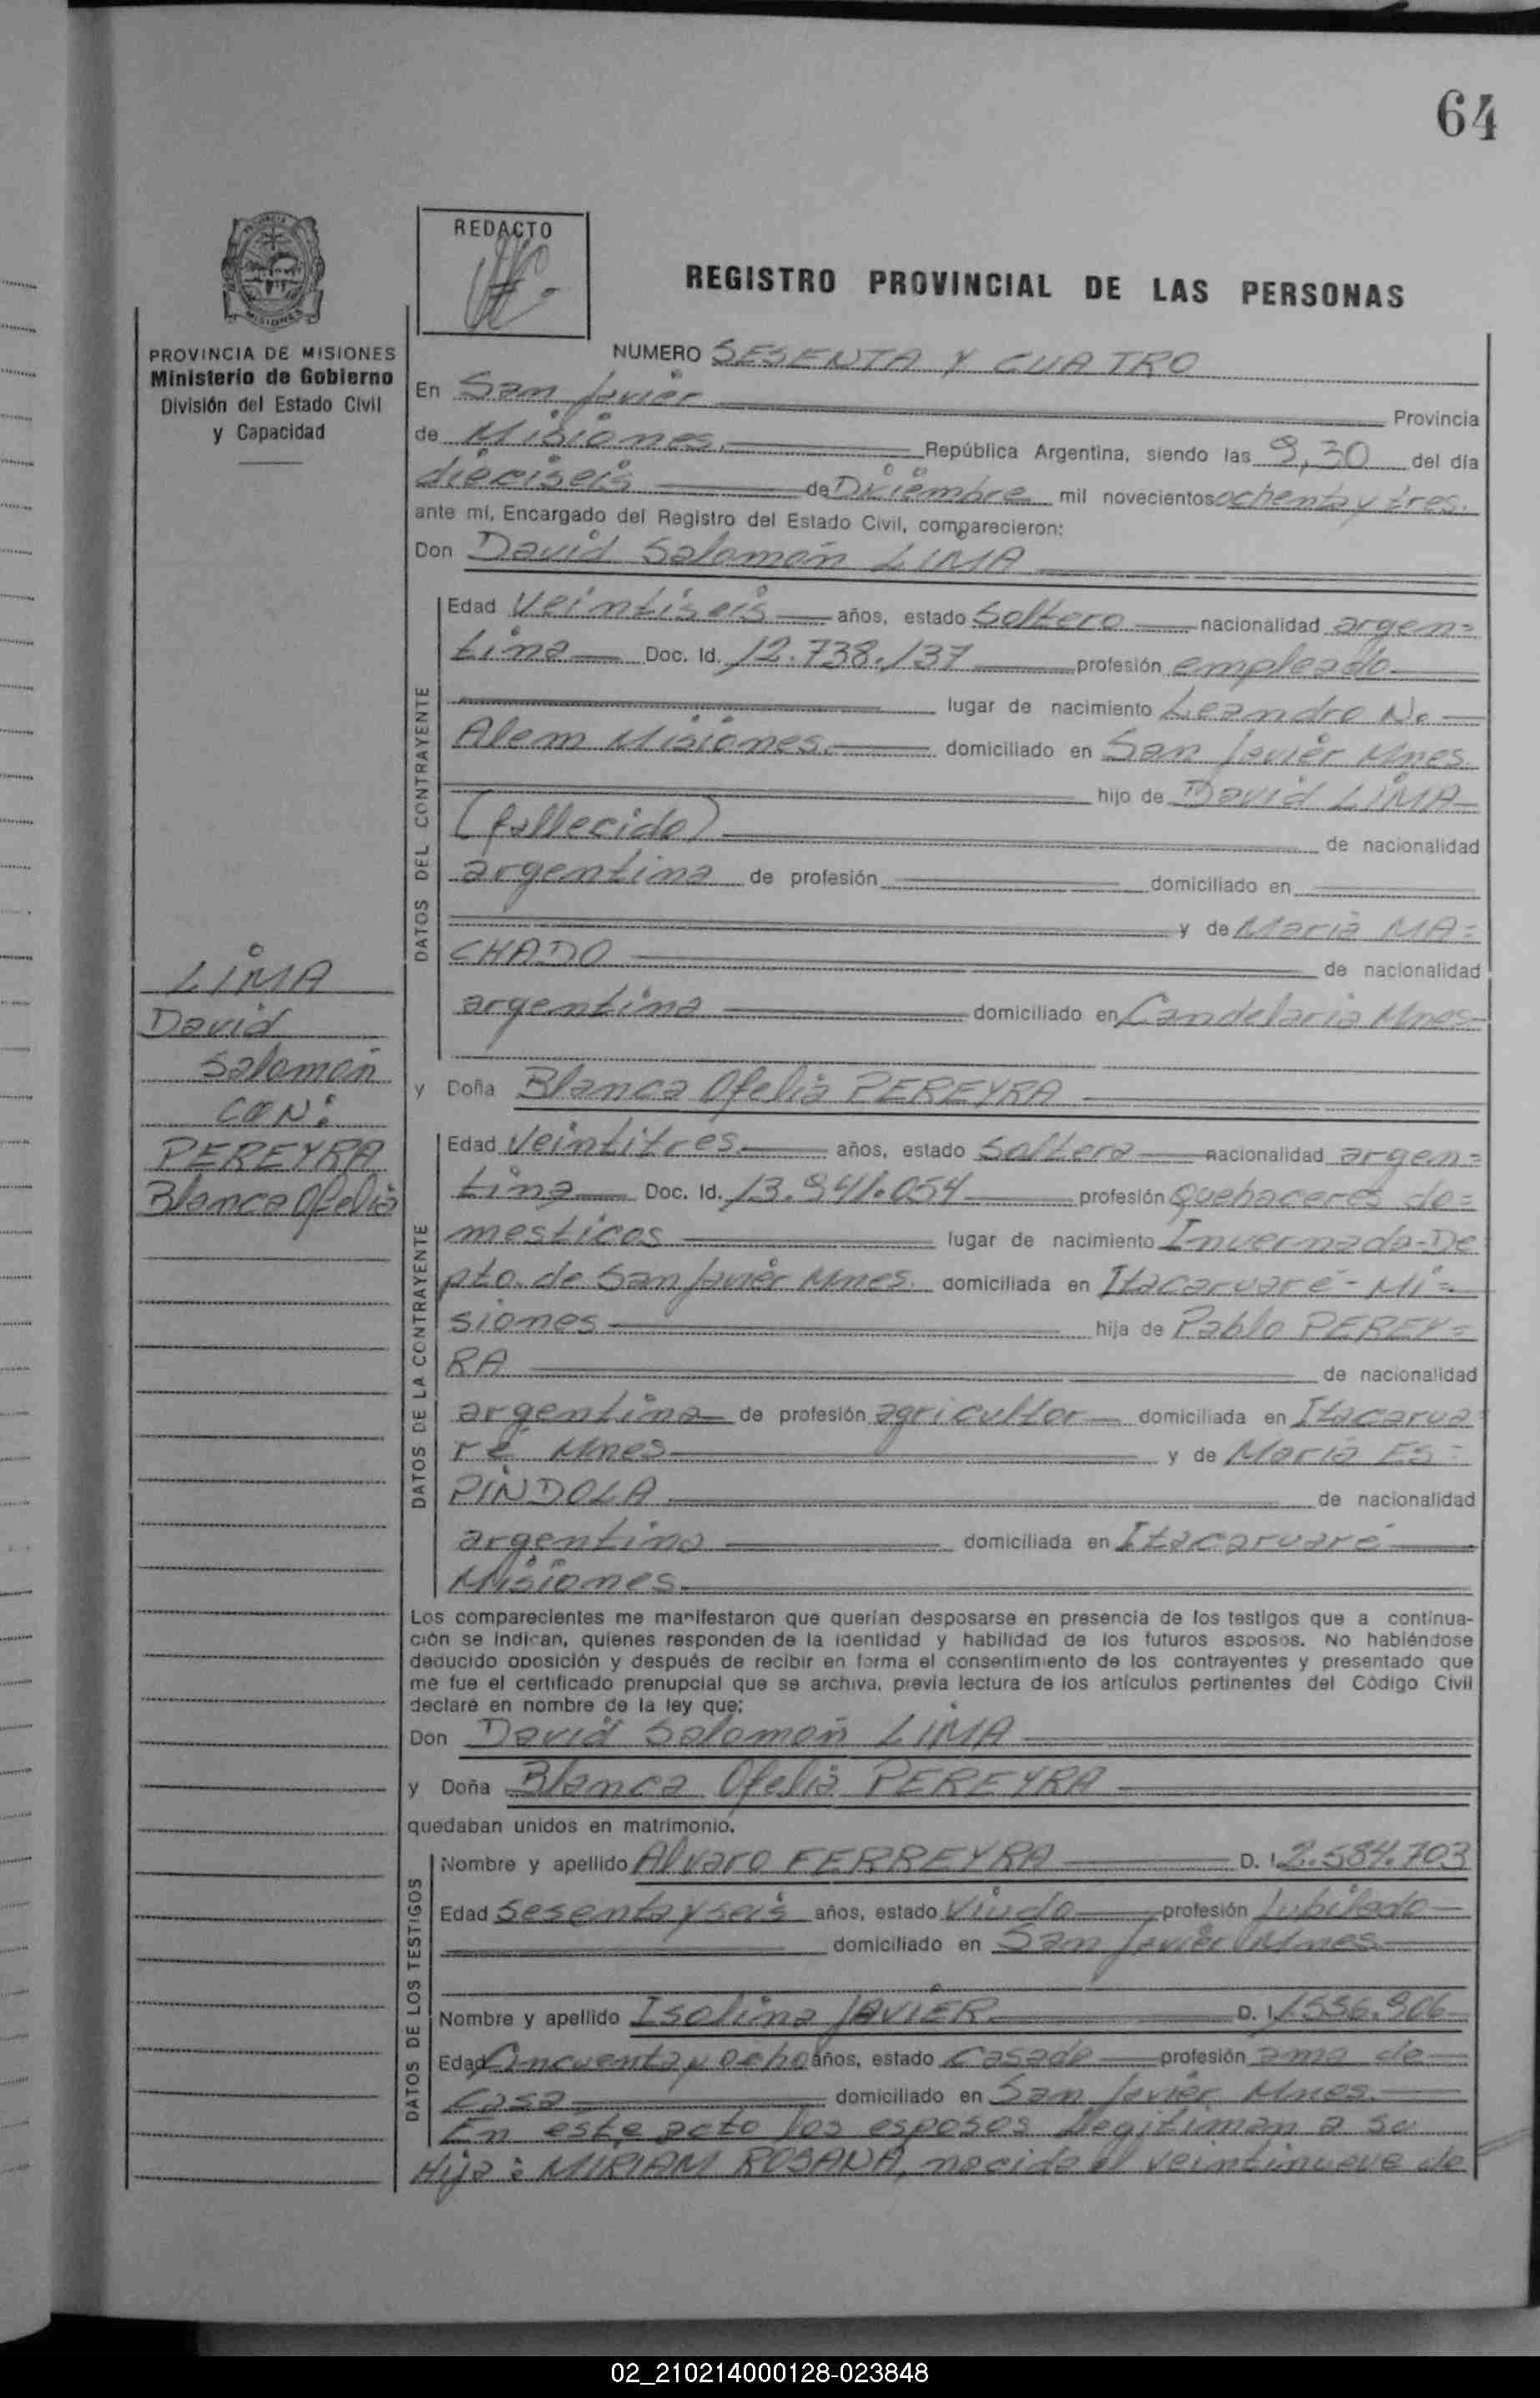 64
REDACTO
REGISTRO PROVINCIAL DE LAS PERSONAS
PROVINCIA DE MISIONES
Ministerio de Gobierno
División del Estado Civil
y Capacidad
NUMERO SESENTA Y CUATRO
En San Javier Provincia
de Misiones. República Argentina, siendo las 9,30 del día
dieciseis de Diciembre mil novecientos ochenta y tres.
ante mí, Encargado del Registro del Estado Civil, comparecieron:
Don David Salomón LIMA
DATOS DEL CONTRAYENTE
Edad Veintiseis años, estado Soltero nacionalidad argen=
tina Doc. Id. 12.738.137 profesión empleado
lugar de nacimiento Leandro N.
Alem Misiones. domiciliado en San Javier Mnes.
hijo de David LIMA
(fallecido) de nacionalidad
argentina de profesión domiciliado en
y de María MA=
CHADO de nacionalidad
argentina domiciliado en Candelaria Mnes
LIMA
David
Salomón
CON:
PEREYRA
Blanca Ofelia
y Doña Blanca Ofelia PEREYRA
DATOS DE LA CONTRAYENTE
Edad Veintitres. años, estado Soltera nacionalidad argen=
tina Doc. Id. 13.941.054 profesión Quehaceres do=
mesticos lugar de nacimiento Invernada-De
pto. de San Javier Mnes. domiciliada en Itacaruaré - Mi=
siones hija de Pablo PEREY=
RA de nacionalidad
argentina de profesión agricultor domiciliada en Itacarua
ré Mnes y de María ES=
PINDOLA de nacionalidad
argentina domiciliada en Itacaruaré
Misiones.
Los comparecientes me manifestaron que querían desposarse en presencia de los testigos que a continua-
ción se indican, quienes responden de la identidad y habilidad de los futuros esposos. No habiéndose
deducido oposición y después de recibir en forma el consentimiento de los contrayentes y presentado que
me fue el certificado prenupcial que se archiva, previa lectura de los artículos pertinentes del Código Civil
declaré en nombre de la ley que;
Don David Salomón LIMA
y Doña Blanca Ofelia PEREYRA
quedaban unidos en matrimonio.
DATOS DE LOS TESTIGOS
Nombre y apellido Alvaro FERREYRA D. I. 2.584.703
Edad Sesenta y seis años, estado Viudo profesión Jubilado
domiciliado en San Javier Mnes.
Nombre y apellido Isolina JAVIER D. I. 1.556.906
Edad Cincuenta y ocho años, estado Casada profesión ama de
casa domiciliado en San Javier Mnes.
En este acto los esposos legitiman a su
Hija: MIRIAM ROSANA, nacida el veintinueve de
02_210214000128-023848